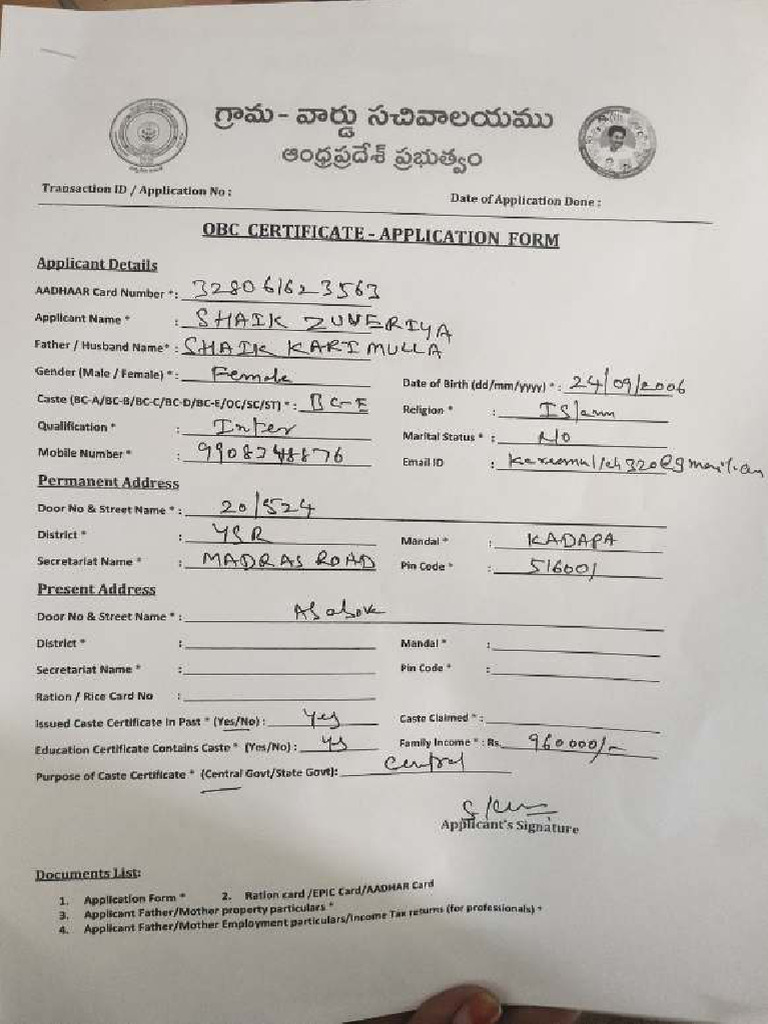 గ్రామ - వార్డు సచివాలయము
ఆంధ్రప్రదేశ్ ప్రభుత్వం
Transaction ID / Application No : Date of Application Done :
OBC CERTIFICATE - APPLICATION FORM
Applicant Details
AADHAAR Card Number * : 328061623563
Applicant Name * : SHAIK ZUVERIYA
Father / Husband Name* : SHAIK KARIMULLA
Gender (Male / Female) * : Female Date of Birth (dd/mm/yyyy) * : 24/09/2006
Caste (BC-A/BC-B/BC-C/BC-D/BC-E/OC/SC/ST) * : BC-E Religion * : ISlam
Qualification * : Inter Marital Status * : NO
Mobile Number * : Email ID :
Permanent Address
Door No & Street Name * : 20/524
District * : YSR Mandal * : KADAPA
Secretariat Name * : MADRAS ROAD Pin Code * : 516001
Present Address
Door No & Street Name * : AS above
District * : Mandal * :
Secretariat Name * : Pin Code * :
Ration / Rice Card No :
Issued Caste Certificate In Past * (Yes/No) : Yes Caste Claimed * :
Education Certificate Contains Caste * (Yes/No) : Yes Family Income * : Rs. 960000/-
Purpose of Caste Certificate * (Central Govt/State Govt): Central
Applicant's Signature
Documents List:
1. Application Form * 2. Ration card /EPIC Card/AADHAR Card
3. Applicant Father/Mother property particulars *
4. Applicant Father/Mother Employment particulars/Income Tax returns (for professionals) *